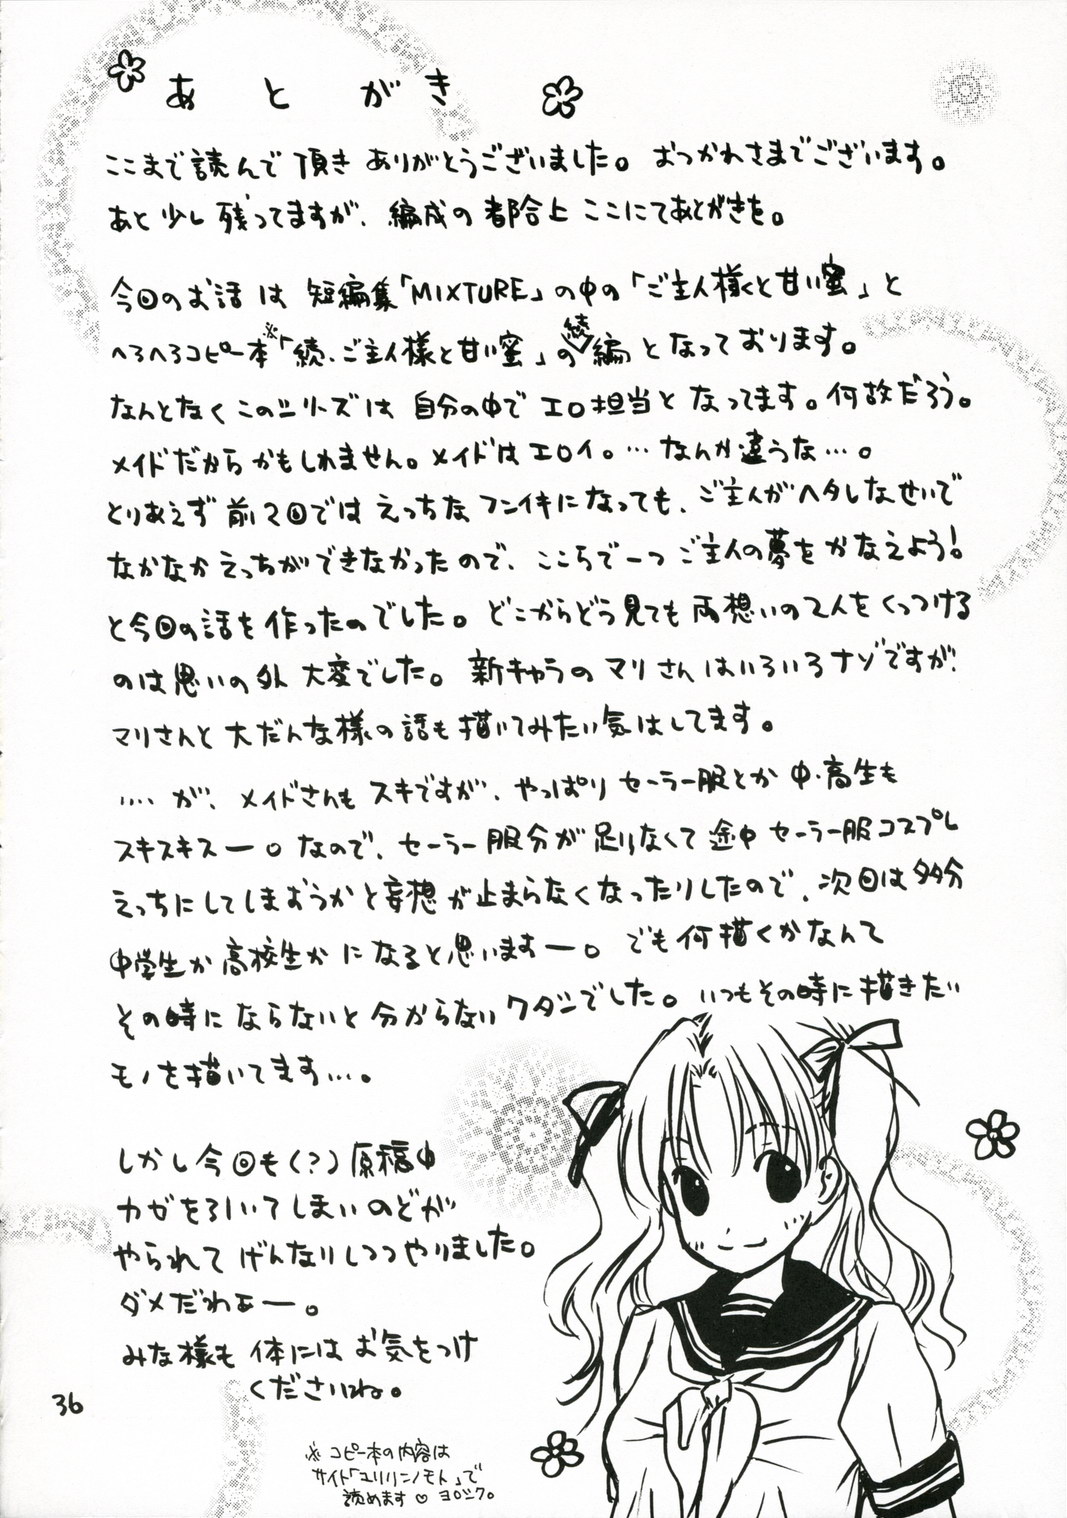 あとがき
ここまで読んで頂きありがとうございました。おつかれさまでございます。
あと少し残ってますが、編成の都合上ここにてあとがきを。
今回のお話は短編集「MIXTURE」の中の「ご主人様と甘い蜜」と
へろへろコピー本※「続、ご主人様と甘い蜜」の続編となっております。
なんとなくこのシリーズは自分の中でエロ担当となってます。何故だろう。
メイドだからかもしれません。メイドはエロイ。…なんか違うな…。
とりあえず前2回ではえっちなフンイキになっても、ご主人がヘタレなせいで
なかなかえっちができなかったので、ここらで一つご主人の夢をかなえよう!
と今回の話を作ったのでした。どこからどう見ても両想いの2人をくっつける
のは思いの外大変でした。新キャラのマリさんはいろいろナゾですが、
マリさんと大だんな様の話も描いてみたい気はしてます。
…. が、メイドさんもスキですが、やっぱりセーラー服とか中・高生も
スキスキスー。なので、セーラー服分が足りなくて途中セーラー服コスプレ
えっちにしてしまおうかと妄想が止まらなくなったりしたので、次回は多分
中学生か高校生かになると思いますー。でも何描くかなんて
その時にならないと分からないワタシでした。いつもその時に描きたい
モノを描いてます…。
しかし今回も(?)原稿中
カゼを引いてしまいのどが
やられてげんなりしつつやりました。
ダメだわぁー。
みな様も体にはお気をつけ
くださいね。
36
※コピー本の内容は
サイト「ユリリンノモト」で
読めます♡ヨロシク。